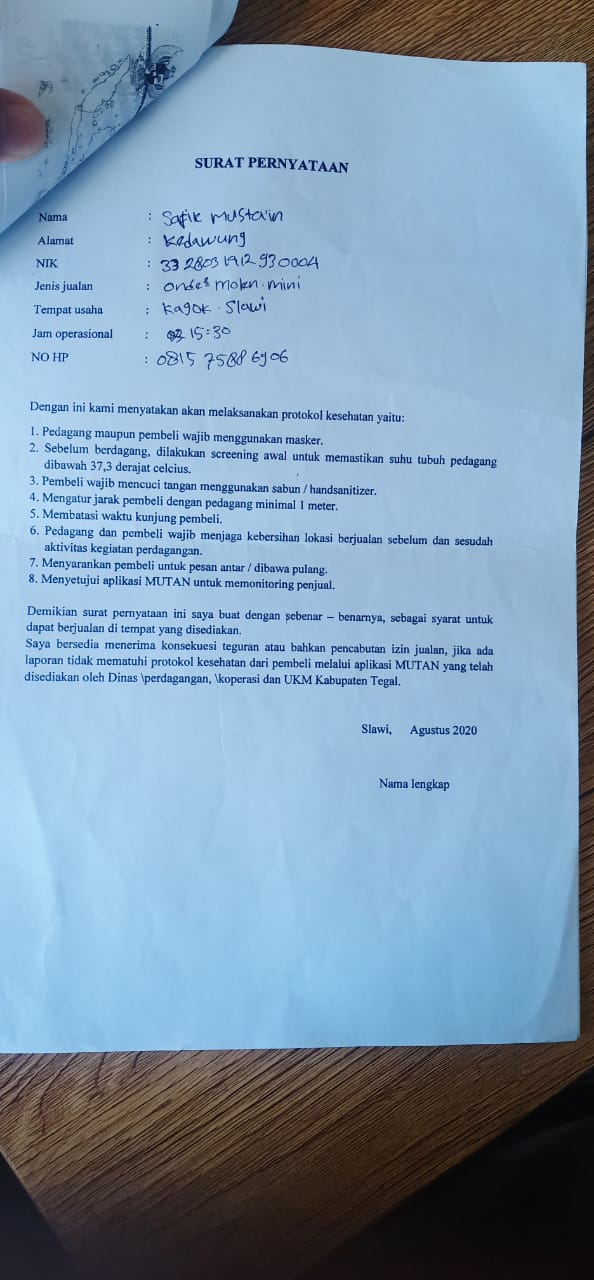 SURAT PERNYATAAN
Nama : Safik Mustain
Alamat : Kedawung
NIK : 33 2803 1912 930004
Jenis jualan : onde² molen mini
Tempat usaha : Kagok . Slawi
Jam operasional : 15:30
NO HP : 0815 7588 6906
Dengan ini kami menyatakan akan melaksanakan protokol kesehatan yaitu:
1. Pedagang maupun pembeli wajib menggunakan masker.
2. Sebelum berdagang, dilakukan screening awal untuk memastikan suhu tubuh pedagang
dibawah 37,3 derajat celcius.
3. Pembeli wajib mencuci tangan menggunakan sabun / handsanitizer.
4. Mengatur jarak pembeli dengan pedagang minimal 1 meter.
5. Membatasi waktu kunjung pembeli.
6. Pedagang dan pembeli wajib menjaga kebersihan lokasi berjualan sebelum dan sesudah
aktivitas kegiatan perdagangan.
7. Menyarankan pembeli untuk pesan antar / dibawa pulang.
8. Menyetujui aplikasi MUTAN untuk memonitoring penjual.
Demikian surat pernyataan ini saya buat dengan sebenar – benarnya, sebagai syarat untuk
dapat berjualan di tempat yang disediakan.
Saya bersedia menerima konsekuesi teguran atau bahkan pencabutan izin jualan, jika ada
laporan tidak mematuhi protokol kesehatan dari pembeli melalui aplikasi MUTAN yang telah
disediakan oleh Dinas \perdagangan, \koperasi dan UKM Kabupaten Tegal.
Slawi, Agustus 2020
Nama lengkap